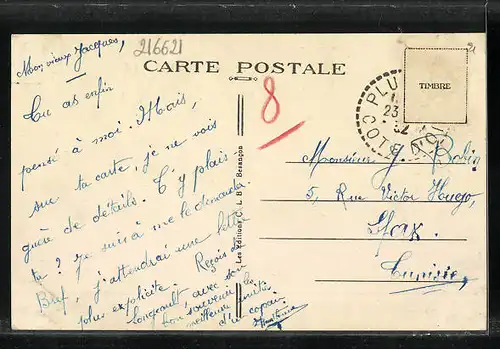 216621
Mon vieux Jacques,
CARTE POSTALE
TIMBRE
8
Tu as enfin
pensé à moi. Mais,
sur ta carte, je ne vois
guère de détails. T'y plais-
tu ? Je suis à me le demander
Bref, j'attendrai une lettre
plus explicite. Reçois de
Longeault, avec de
bon souvenir, les
meilleures amitiés
d'un copain.
Les Editions C. L. B. Besançon
PLU
23
32
COTE
Monsieur J. Robin
5, Rue Victor Hugo,
Sfax
Tunisie.